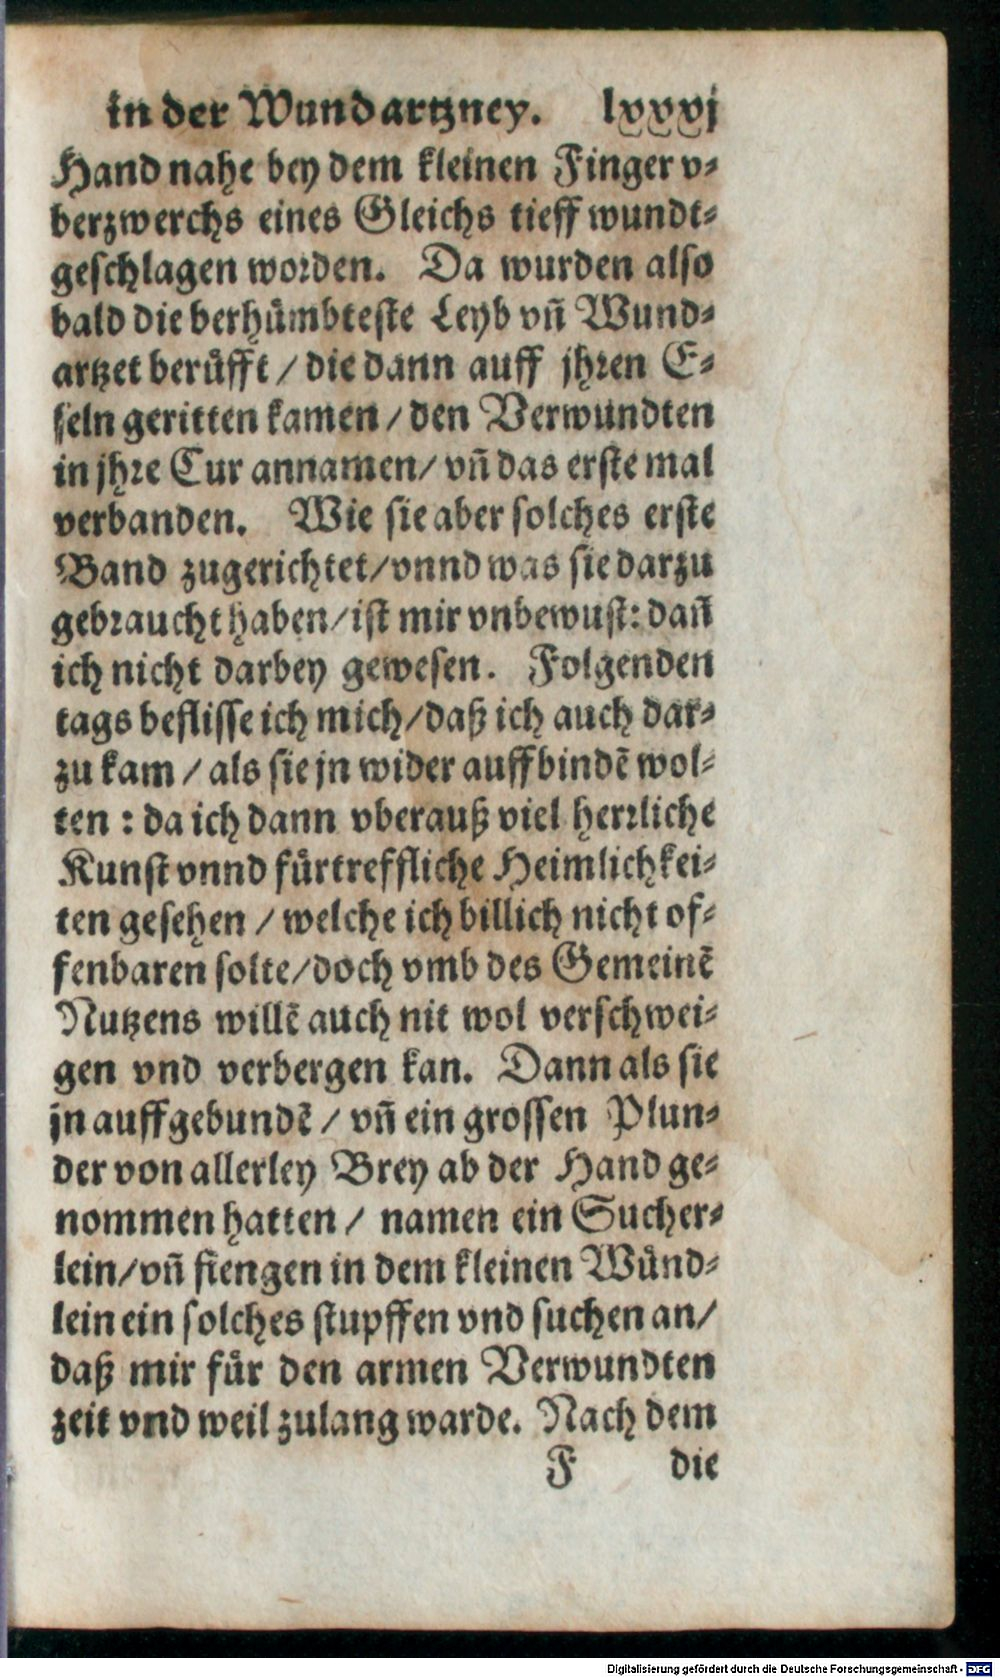 in der Wundartzney. lxxxj
Hand nahe bey dem kleinen Finger v⸗
berzwerchs eines Gleichs tieff wundt⸗
geschlagen worden. Da wurden also
bald die berhümbteste Leyb vñ Wund⸗
artzet berüfft / die dann auff jhren E⸗
seln geritten kamen / den Verwundten
in jhre Cur annamen / vñ das erste mal
verbanden. Wie sie aber solches erste
Band zugerichtet / vnnd was sie darzu
gebraucht haben / ist mir vnbewust: dañ
ich nicht darbey gewesen. Folgenden
tags beflisse ich mich / daß ich auch dar⸗
zu kam / als sie jn wider auffbindẽ wol⸗
ten : da ich dann vberauß viel herrliche
Kunst vnnd fürtreffliche Heimlichkei⸗
ten gesehen / welche ich billich nicht of⸗
fenbaren solte / doch vmb des Gemeinẽ
Nutzens willẽ auch nit wol verschwei⸗
gen vnd verbergen kan. Dann als sie
jn auffgebundẽ / vñ ein grossen Plun⸗
der von allerley Brey ab der Hand ge⸗
nommen hatten / namen ein Sucher⸗
lein / vñ fiengen in dem kleinen Wünd⸗
lein ein solches stupffen vnd suchen an /
daß mir für den armen Verwundten
zeit vnd weil zulang warde. Nach dem
F die
Digitalisierung gefördert durch die Deutsche Forschungsgemeinschaft - DFG